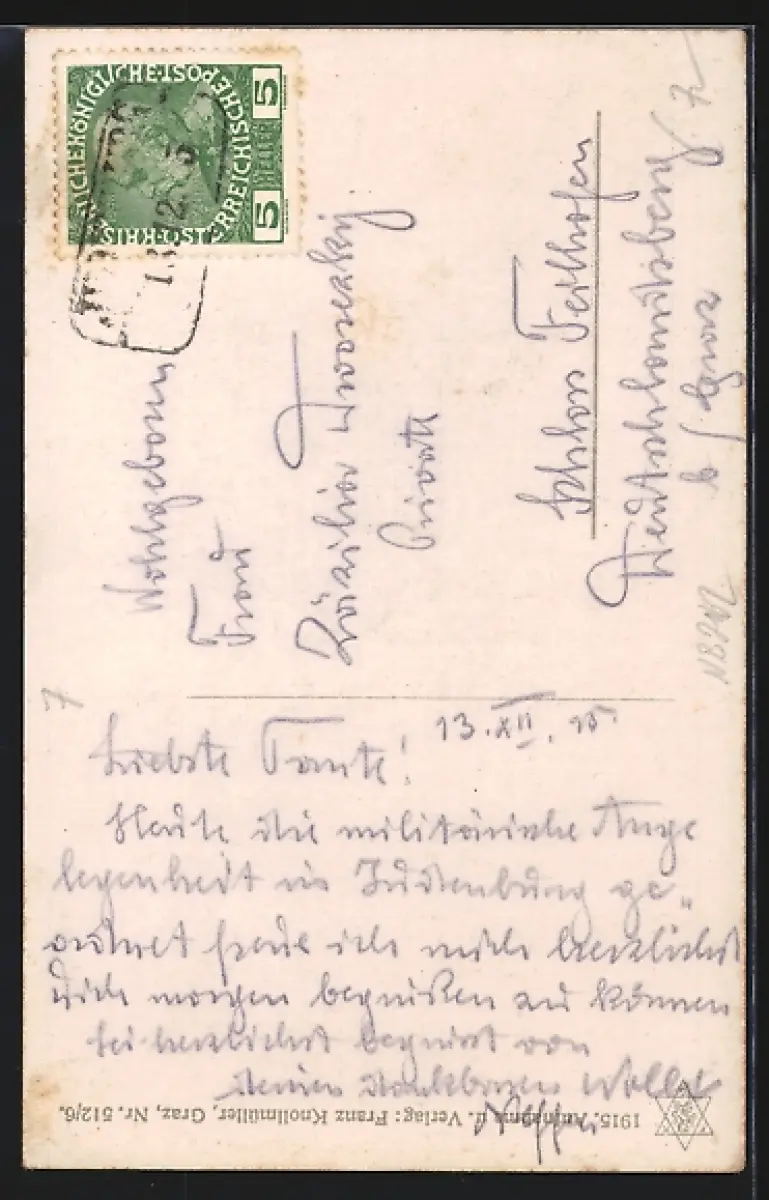 KAISERLICHE KÖNIGLICHE ÖSTERREICHISCHE POST
5 HELLER 5
Wohlgeboren
Frau
Privath
Schloss Feilhofen
b/ Graz
N8292
7
13. XII. 15.
Liebste Tante!
Heute die militärische Ange
legenheit in Judenburg ge„
ordnet freue ich mich herzlichst
Dich morgen begrüßen zu können
Sei herzlichst begrüsst von
deinem dankbaren
Neffen
1915. Aufnahme u. Verlag: Franz Knollmüller, Graz, Nr. 512/6.